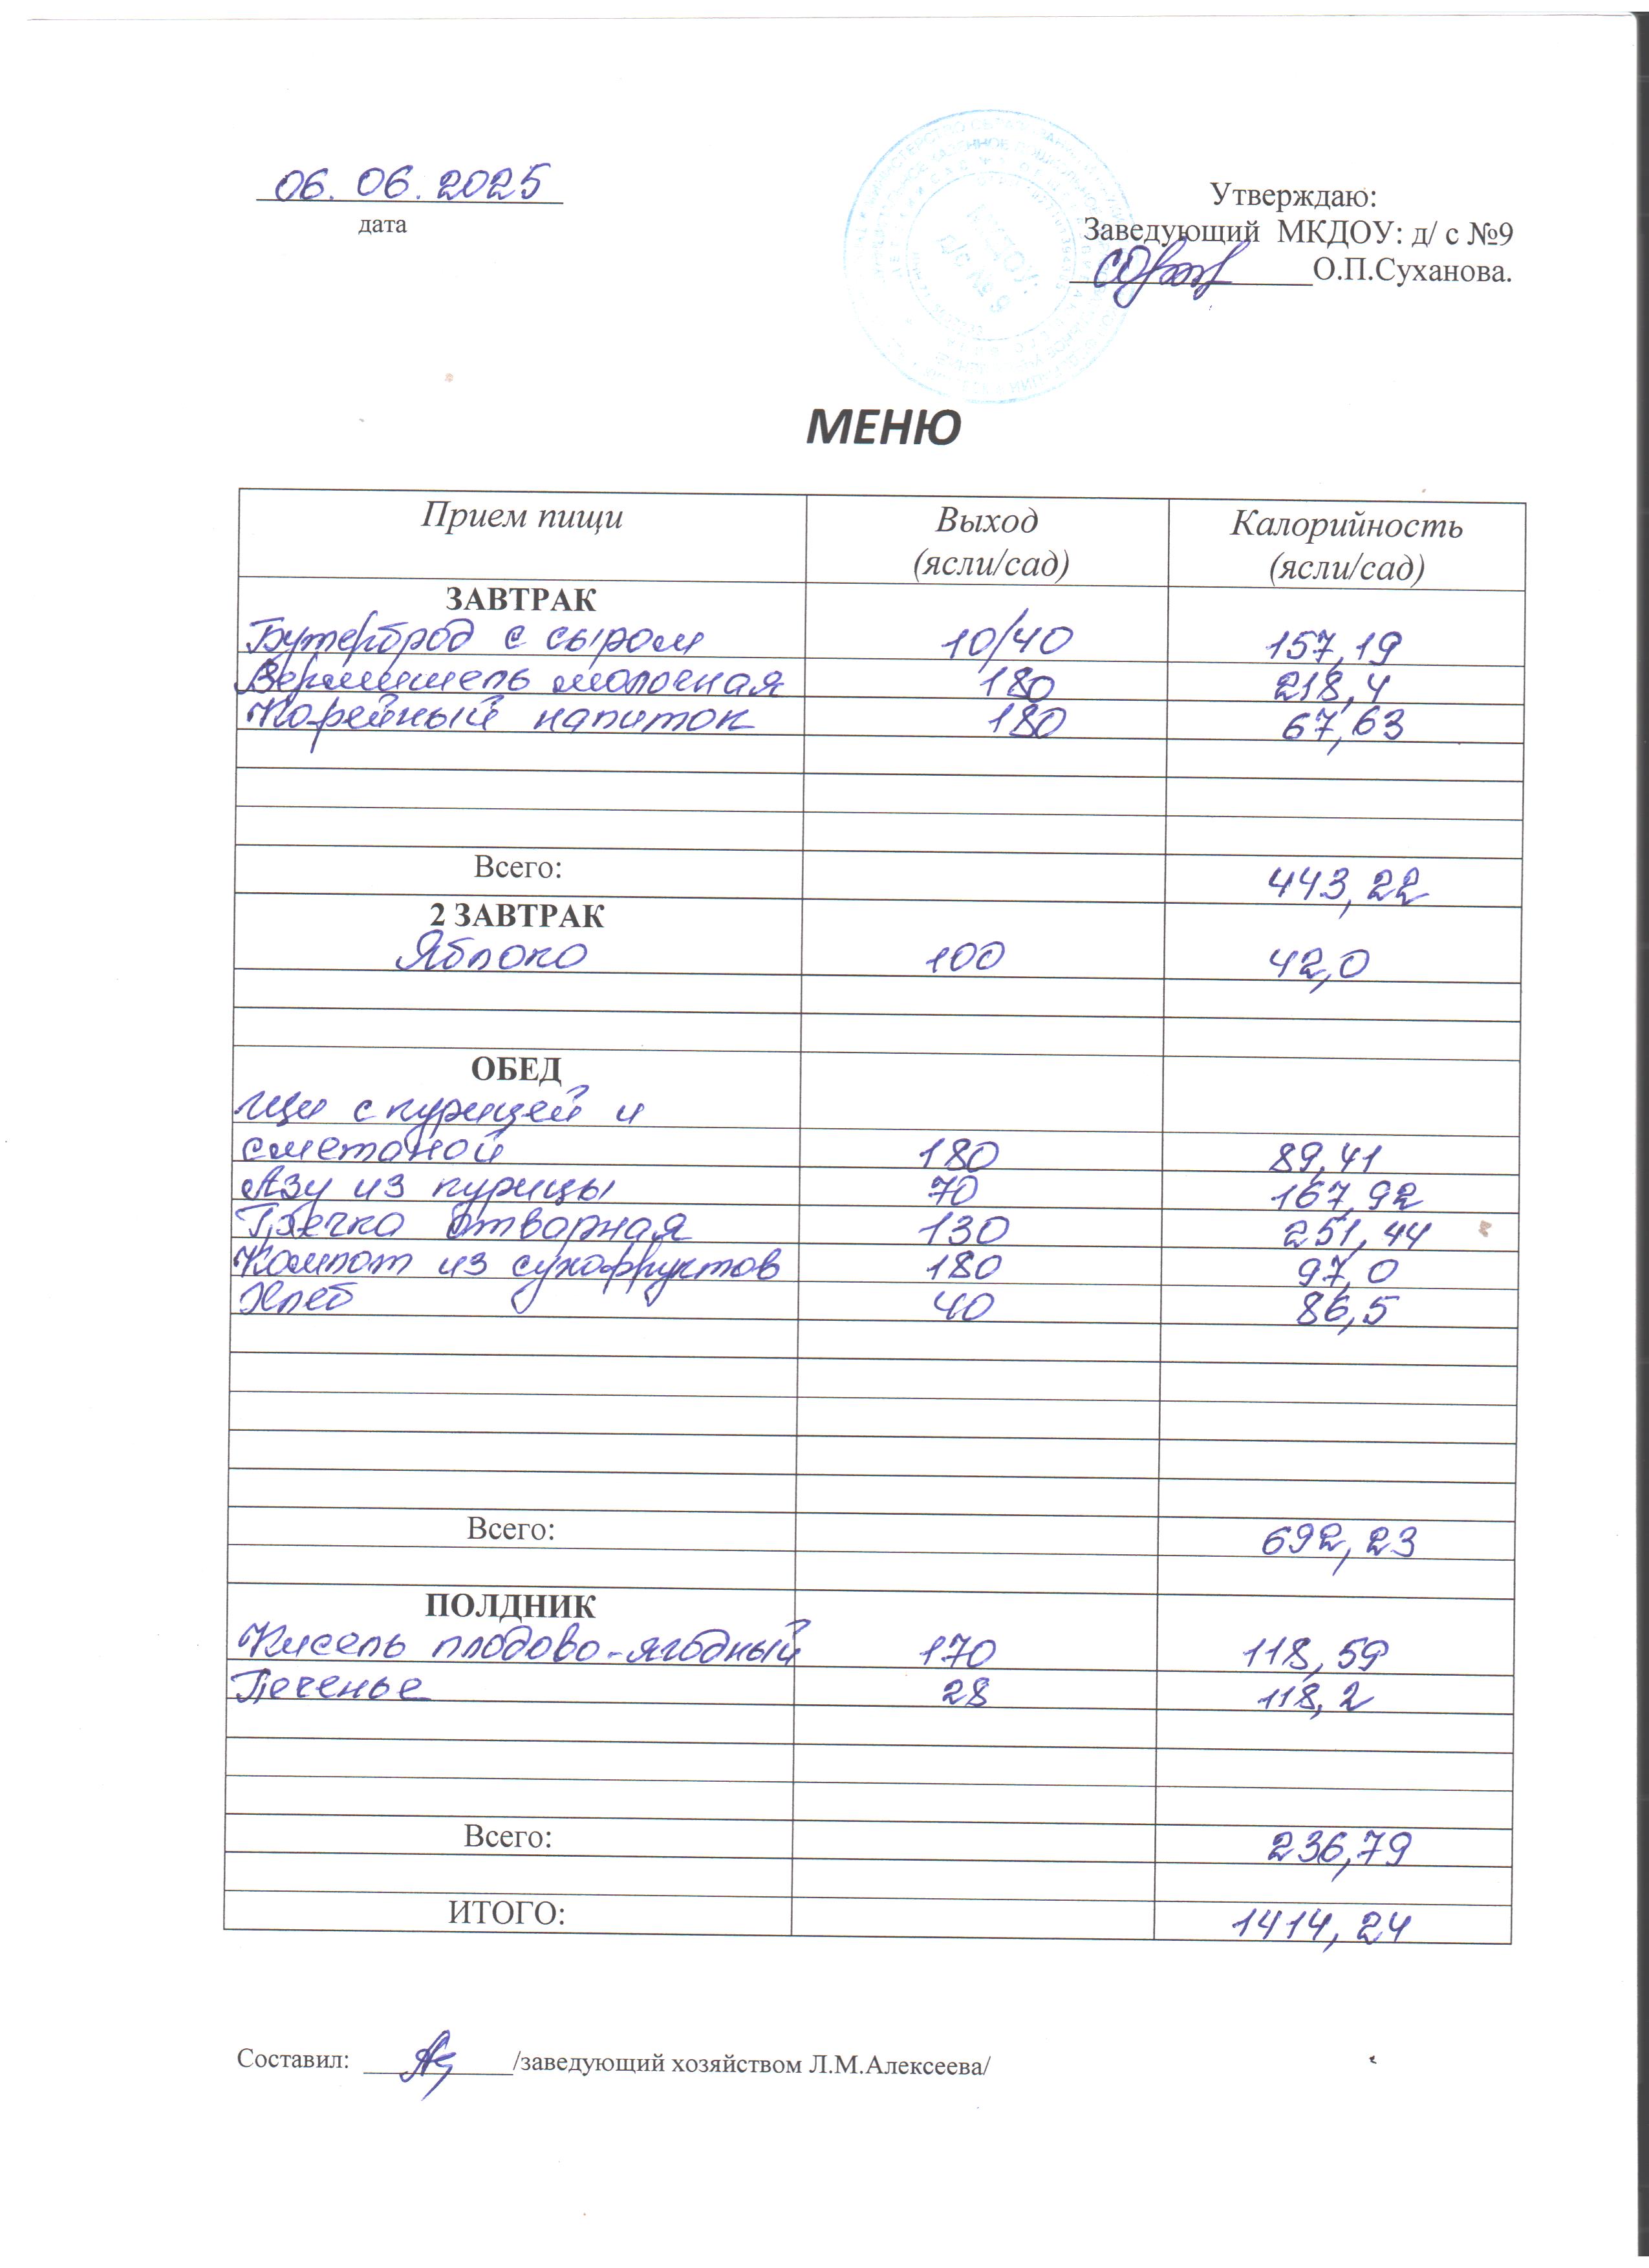 06.06.2025
дата
Утверждаю:
Заведующий МКДОУ: д/ с №9
О.П.Суханова.
МКДОУ:
д/с № 9
МЕНЮ
Прием пищи Выход (ясли/сад) Калорийность (ясли/сад)
ЗАВТРАК
Бутерброд с сыром 10/40 157,19
Вермишель молочная 180 218,4
Кофейный напиток 180 67,63
Всего: 443,22
2 ЗАВТРАК
Яблоко 100 42,0
ОБЕД
Щи с курицей и
сметаной 180 89,41
Азу из курицы 70 167,92
Гречка отварная 130 251,44
Компот из сухофруктов 180 97,0
Хлеб 40 86,5
Всего: 692,23
ПОЛДНИК
Кисель плодово-ягодный 170 118,59
Печенье 28 118,2
Всего: 236,79
ИТОГО: 1414,24
Составил: /заведующий хозяйством Л.М.Алексеева/